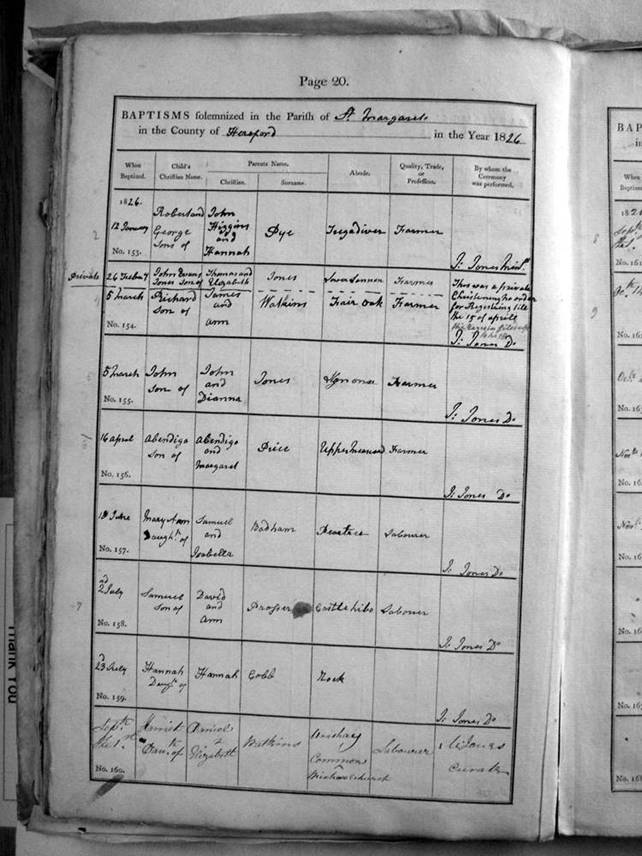 Page 20.
BAPTISMS solemnized in the Parish of St Margarets
in the County of Hereford in the Year 1826
When Baptized. Child's Christian Name. Parents Name. Christian. Surname. Abode. Quality, Trade, or Profession. By whom the Ceremony was performed.
1826.
12 January Robert and George Sons of John Higgins and Hannah Pye Tregadiver Farmer
No. 153. J: Jones
Private 26 John Evan Jones Son of Thomas and Elizabeth Jones Farmer This was a private Christening no order for Registering till the 15 of april
5 March Richard Son of James and Ann Watkins Fair Oak Farmer
No. 154. J: Jones Do
5 March John Son of John and Dianna Jones Farmer
No. 155. J: Jones Do
16 April Abendigo Son of Abendigo and Margaret Price Upper Farmer
No. 156. J: Jones Do
18 June Mary Ann Daught of Samuel and Isabella Badham Labourer
No. 157. J: Jones Do
2d July Samuel Son of David and Ann Prosser Labourer
No. 158. J: Jones Do
23 July Hannah Daught of Hannah Cobb Rock
No. 159. J: Jones Do
Septr Harriet Daur of Daniel & Elizabeth Watkins Common Michaelchurch Labourer Jones Curate
No. 160.
BAP
in
When
Baptized.
182
No. 161
No. 16
Octr
No. 16
Novr
No. 16
Novr
No. 16
No. 16
No. 16
No. 168
THANK YOU